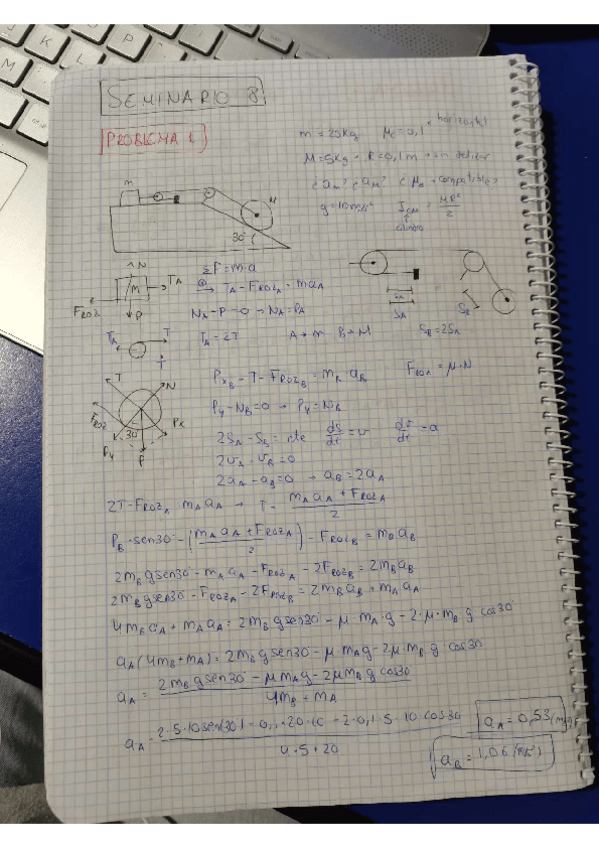 SEMINARIO 8
PROBLEMA 1
m = 20kg μc = 0,1 → horizontal
M = 5kg → R = 0,1 m → sin deslizar
¿ am? ¿ aM? ¿ μe → compatible?
g = 10m/s² ICM = MR²/2
cilindro
m
M
30°
N
M
TA
FROZ
P
ΣF = m·a
TA - FROZA = m aA
NA - P = 0 → NA = PA
TA = 2T A → m B → M
SA
SB
SB = 2SA
TA T
T
T
N
FROZ
Px
Py
30
P
PxB - T - FROZB = mB · aB
FROZ = μ·N
Py - NB = 0 → Py = NB
2SA - SB = cte ds/dt = v dv/dt = a
2vA - vB = 0
2aA - aB = 0 → aB = 2aA
2T - FROZA = mA aA → T = (mA aA + FROZA)/2
PB · sen30 - ((mA aA + FROZA)/2) - FROZB = mB aB
2mB g sen30 - mA aA - FROZA - 2FROZB = 2mB aB
2mB g sen30 - FROZA - 2FROZB = 2mB aB + mA aA
4mB aA + mA aA = 2mB g sen30 - μ · mA · g - 2 · μ · mB g cos30
aA (4mB + mA) = 2mB g sen30 - μ mA g - 2μ mB g cos30
aA = (2mB g sen30 - μ mA g - 2μ mB g cos30)/(4mB + mA)
aA = (2·5·10 sen(30) - 0,1·20·10 - 2·0,1·5·10·cos30)/(4·5+20)
aA = 0,53 (m/s²)
aB = 1,06 (m/s²)